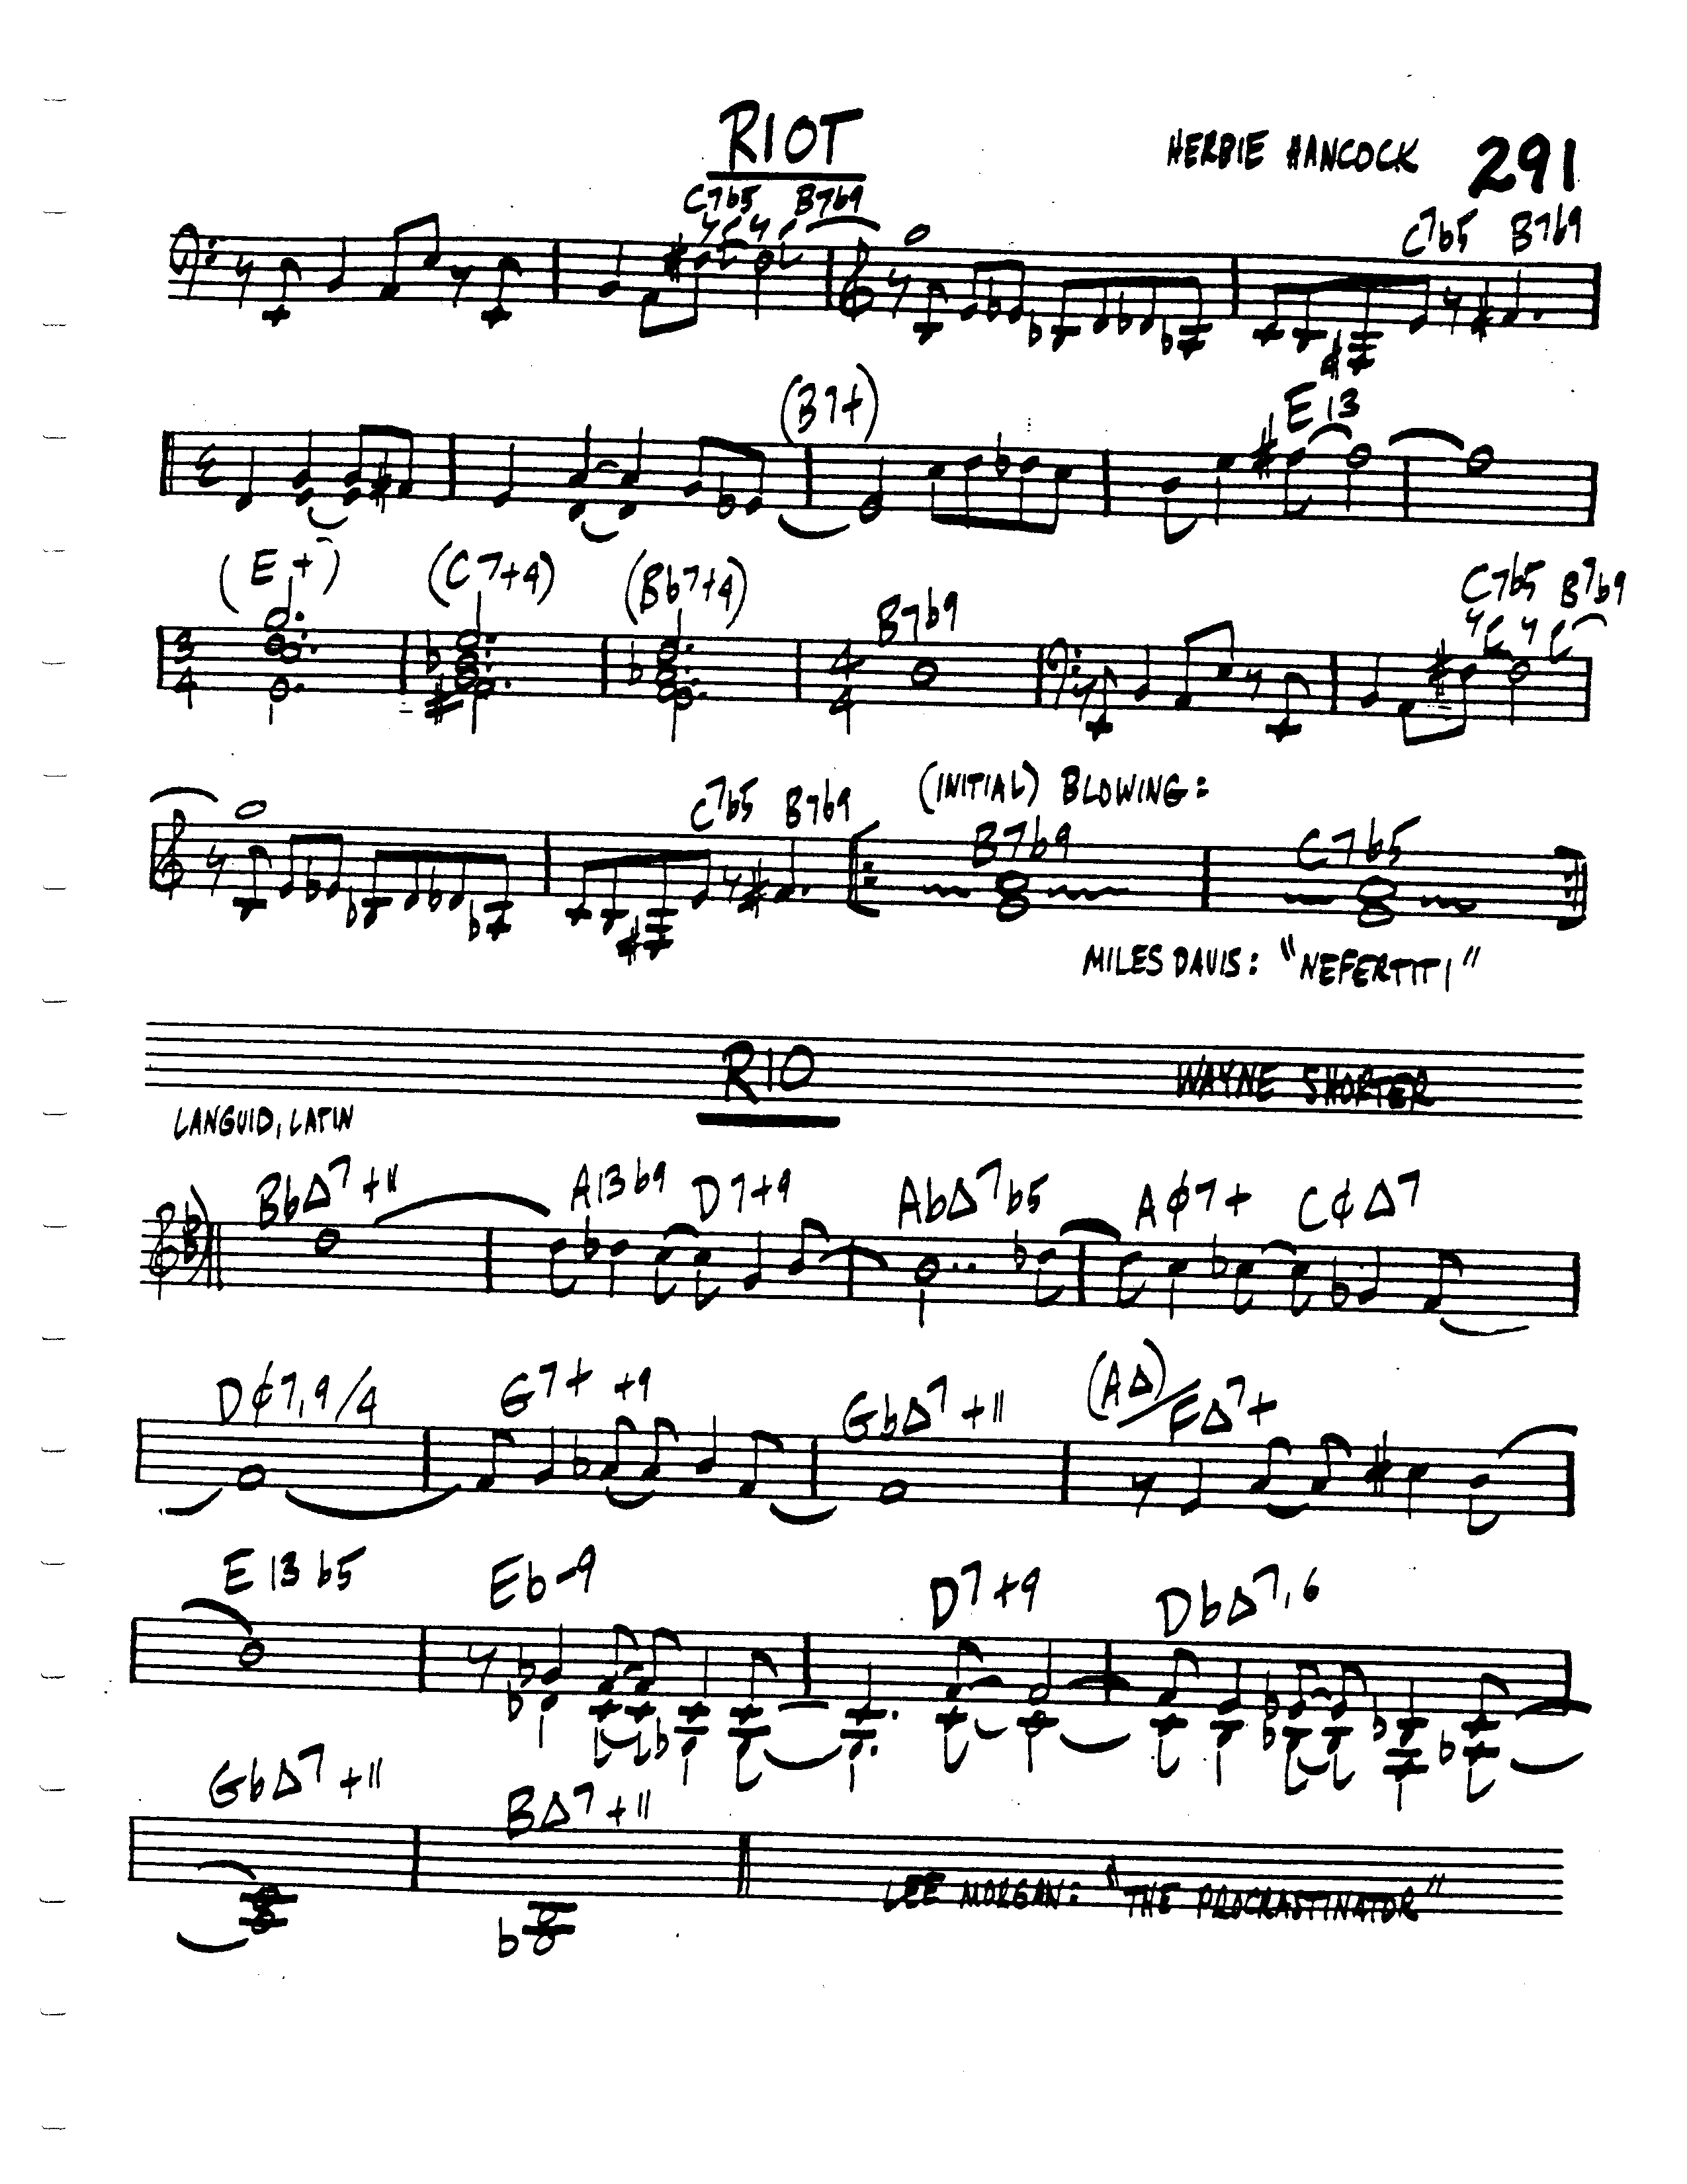 RIOT
HERBIE HANCOCK 291
C7b5 B7b9
C7b5 B7b9
(B7+)
E13
(E+) (C7+4) (Bb7+4) B7b9 C7b5 B7b9
3 4 4 4
C7b5 B7b9 (INITIAL) BLOWING:
B7b9 C7b5
MILES DAVIS: "NEFERTITI"
RIO
WAYNE SHORTER
LANGUID, LATIN
BbΔ7+11 A13b9 D7+9 AbΔ7b5 Aø7+ C¢Δ7
Dø7,9/4 G7+ +9 GbΔ7+11 (AΔ)/FΔ7+
E13b5 Eb-9 D7+9 DbΔ7,6
GbΔ7+11 BΔ7+11
LEE MORGAN: "THE PROCRASTINATOR"